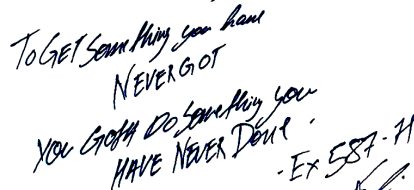 TO GET Something you have
NEVER GOT
YOU GOTTA DO Something you
HAVE NEVER Done.
- Ex 587-H